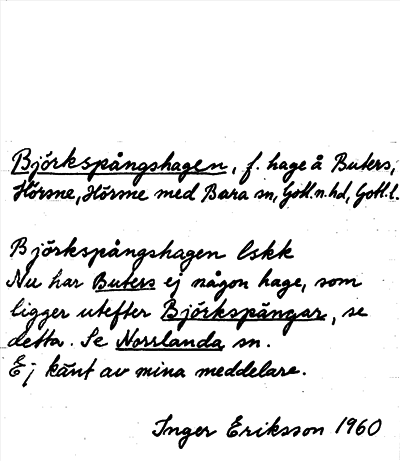 Björkspångshagen, f. hage å Buters,
Hörsne, Hörsne med Bara sn, Gotl. n. hd, Gotl. l.
Björkspångshagen lskk
Nu har Buters ej någon hage, som
ligger utefter Björkspångar, se
detta. Se Norrlanda sn.
Ej känt av mina meddelare.
Inger Eriksson 1960